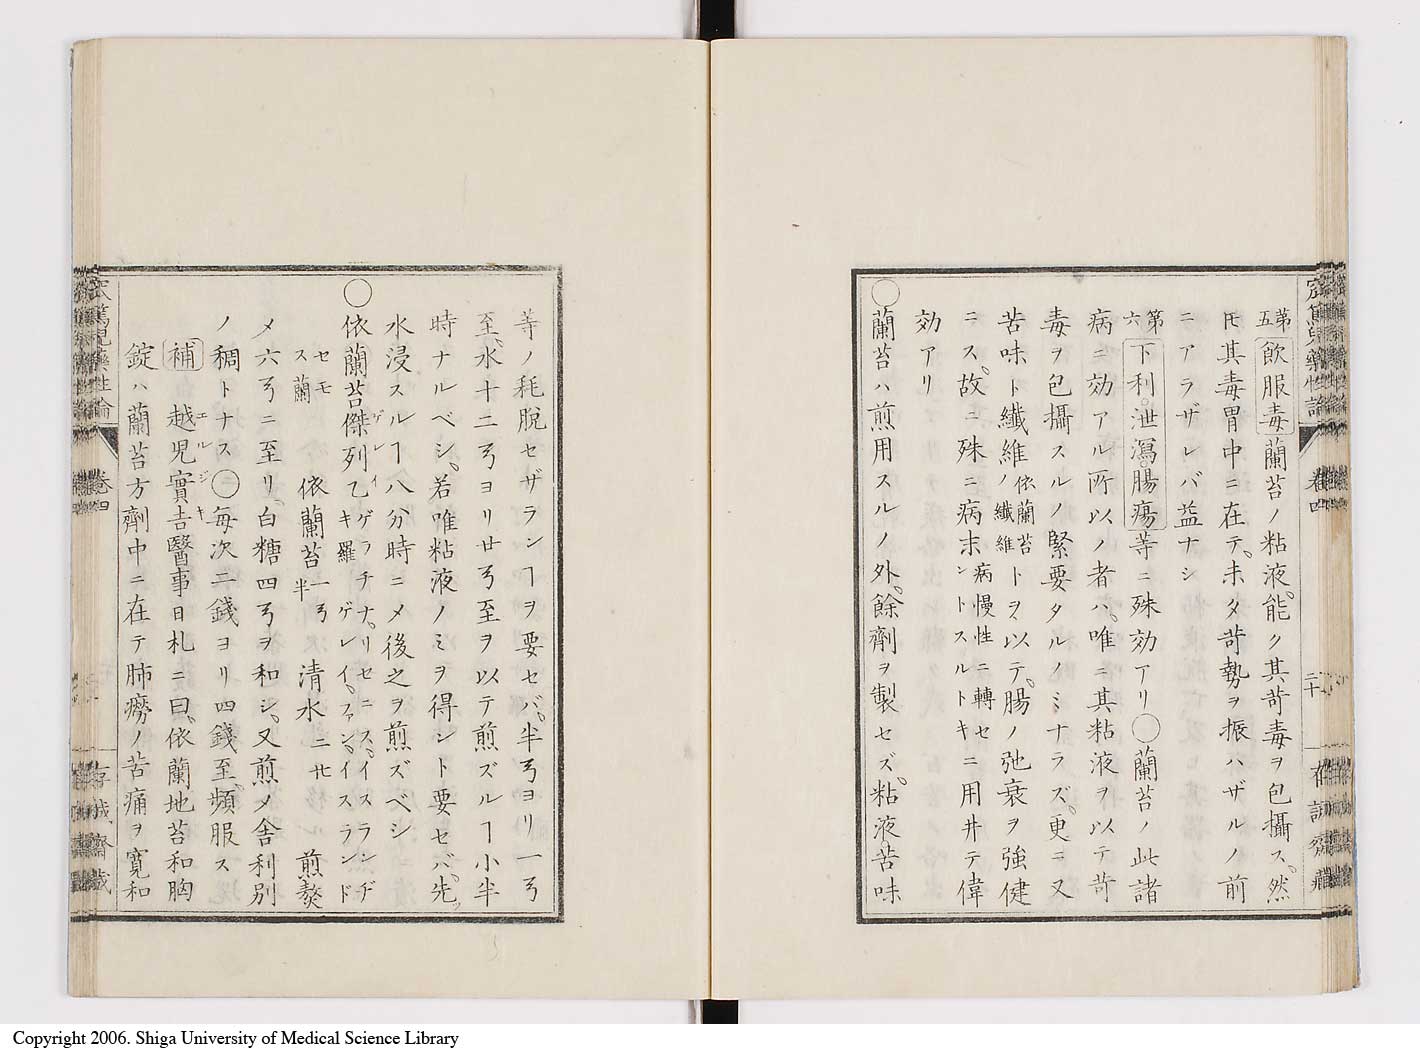 第五 飲服毒 蘭苔ノ粘液、能ク其苛毒ヲ包攝ス。然
𪜈其毒胃中ニ在テ、未タ苛勢ヲ振ハザルノ前
ニアラザレバ益ナシ
第六 下利。泄瀉。腸瘍 等ニ殊効アリ◯蘭苔ノ此諸
病ニ効アル所以ノ者ハ、唯ニ其粘液ヲ以テ苛
毒ヲ包攝スルノ緊要タルノミナラズ、更ニ又
苦味ト纎維依蘭苔ノ纎維トヲ以テ、腸ノ弛衰ヲ強健
ニス。故ニ殊ニ病末病慢性ニ轉セントスルトキニ用井テ偉
効アリ
◯蘭苔ハ煎用スルノ外、餘劑ヲ製セズ。粘液苦味
窊篤兒藥性論
卷四
二十
等ノ耗脱セザランヿヲ要セバ、半弓ヨリ一弓
至、水十二弓ヨリ廿弓至ヲ以テ煎ズルヿ小半
時ナルベシ、若唯粘液ノミヲ得ント要セバ、先ッ
水浸スルヿ八分時ニメ後之ヲ煎ズベシ
◯依蘭苔傑列乙ゲレイゲラチナ。リセニス、イスランヂキ羅ゲレイ、ファン、イスランド
セモス蘭 依蘭苔一弓半 清水二卄 煎熬
メ六弓ニ至リ、白糖四弓ヲ和シ、又煎メ舎利別
ノ稠トナス◯毎次二錢ヨリ四錢至、頻服ス
補 越児實吉エルジキ醫事日札ニ曰、依蘭地苔和胸
錠ハ蘭苔方劑中ニ在テ肺癆ノ苦痛ヲ寛和
窊篤兒藥性論
卷四
存誠齋蔵